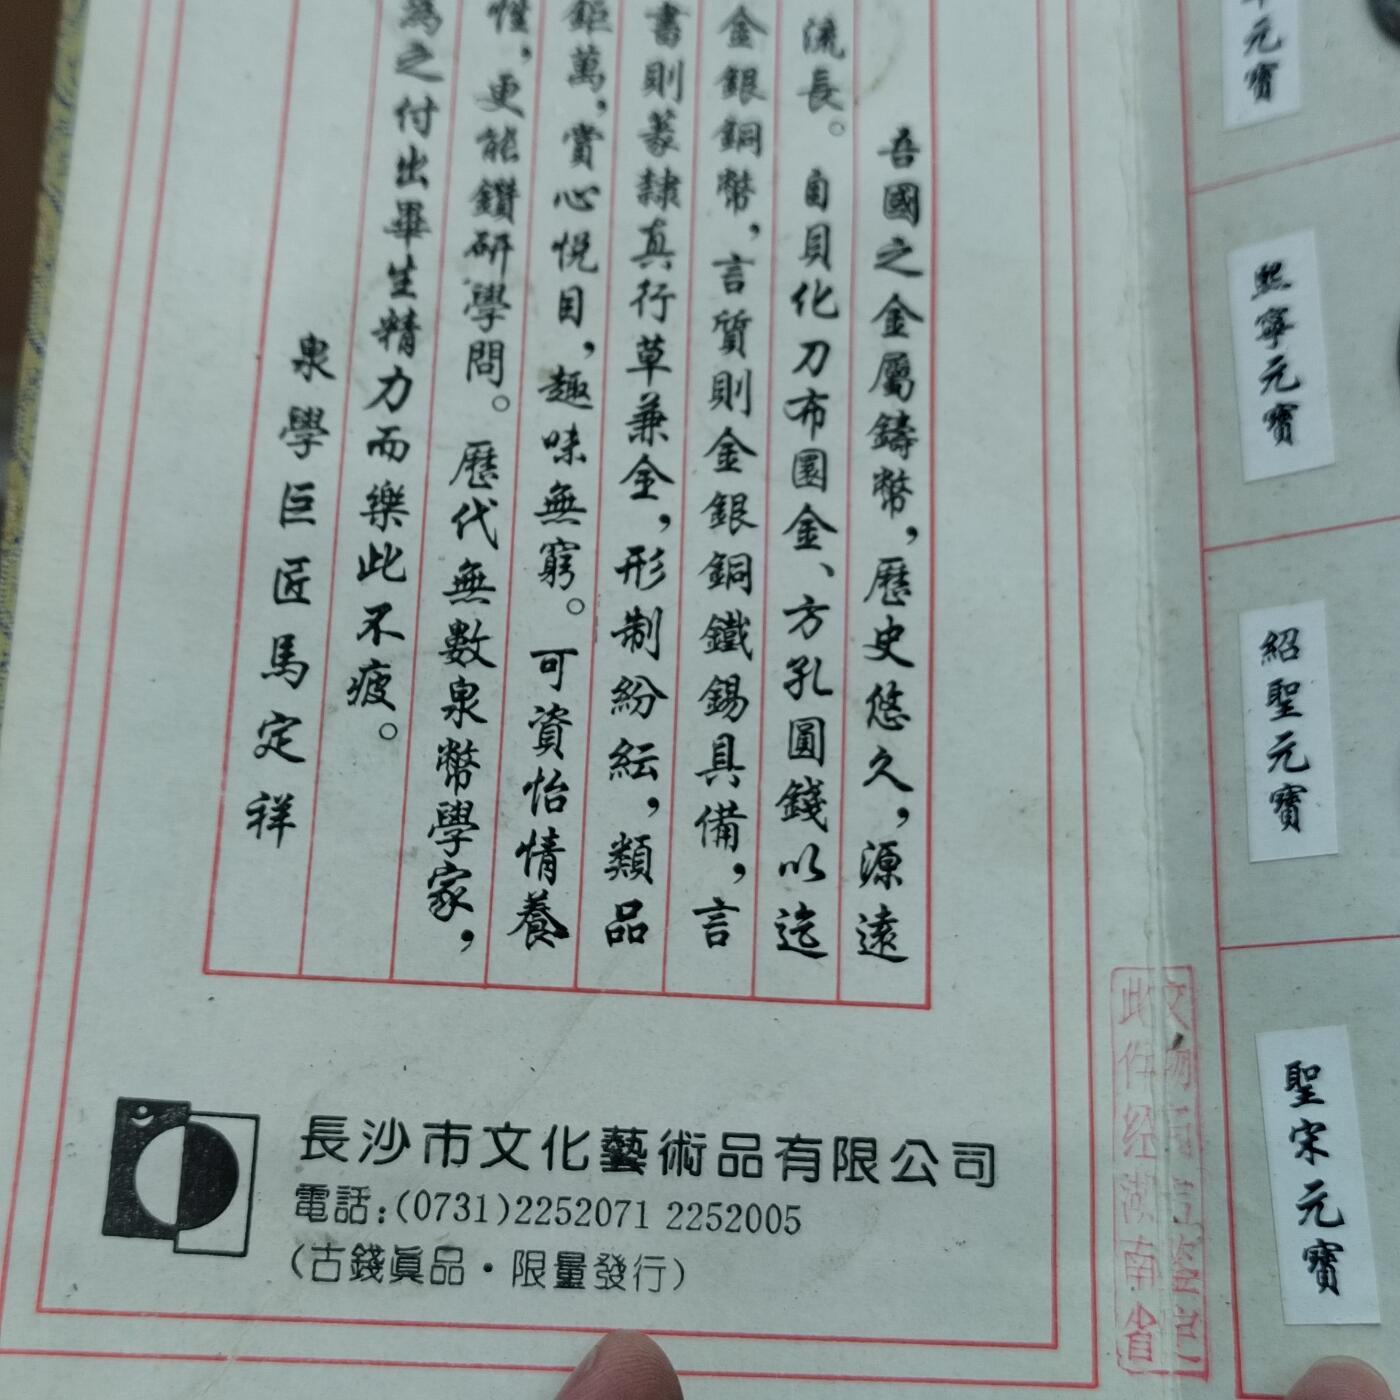 吾國之金屬鑄幣，歷史悠久，源遠
流長。自貝化刀布圜金、方孔圓錢以迄
金銀銅幣，言質則金銀銅鐵錫具備，言
書則篆隸真行草兼全，形制紛紜，類品
鉅萬，賞心悅目，趣味無窮。可資怡情養
性，更能鑽研學問。歷代無數泉幣學家，
為之付出畢生精力而樂此不疲。
泉學巨匠馬定祥
長沙市文化藝術品有限公司
電話:(0731)2252071 2252005
(古錢眞品·限量發行)
文物
此件经湖南省
元寳
熙寧元寳
紹聖元寳
聖宋元寳